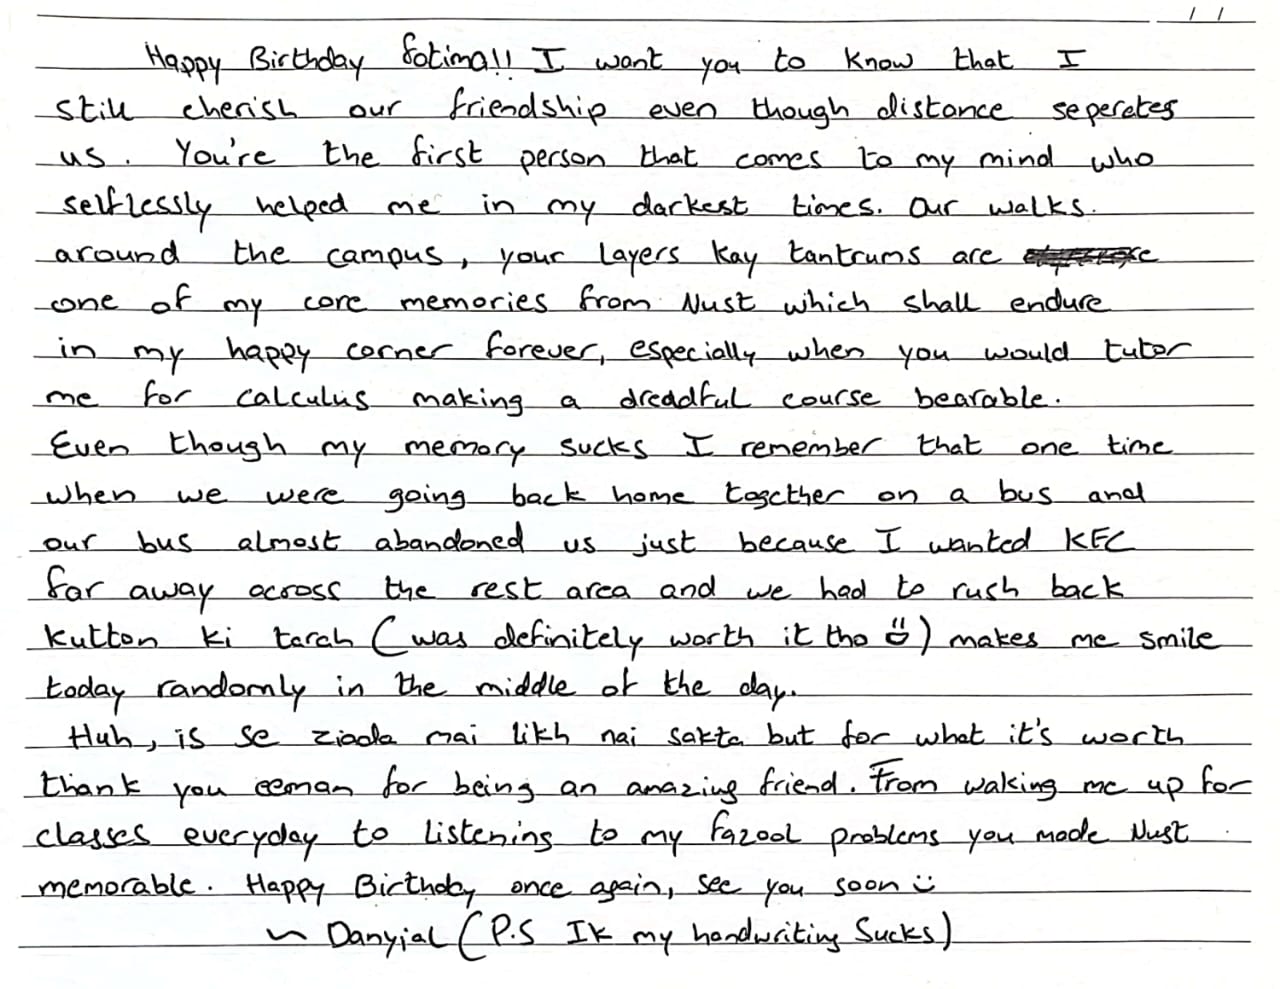 Happy Birthday fatima!! I want you to know that I
still cherish our friendship even though distance seperates
us. You're the first person that comes to my mind who
selflessly helped me in my darkest times. Our walks.
around the campus, your layers kay tantrums are
one of my core memories from Nust which shall endure
in my happy corner forever, especially when you would tutor
me for calculus making a dreadful course bearable.
Even though my memory sucks I remember that one time
when we were going back home together on a bus and
our bus almost abandoned us just because I wanted KFC
far away across the rest area and we had to rush back
kutton ki tarah (was definitely worth it tho 😃) makes me smile
today randomly in the middle of the day.
Huh, is se ziada mai likh nai sakta but for what it's worth
thank you eeman for being an amazing friend. From waking me up for
classes everyday to listening to my fazool problems you made Nust
memorable. Happy Birthday once again, see you soon :)
~ Danyial (P.S Ik my handwriting Sucks)